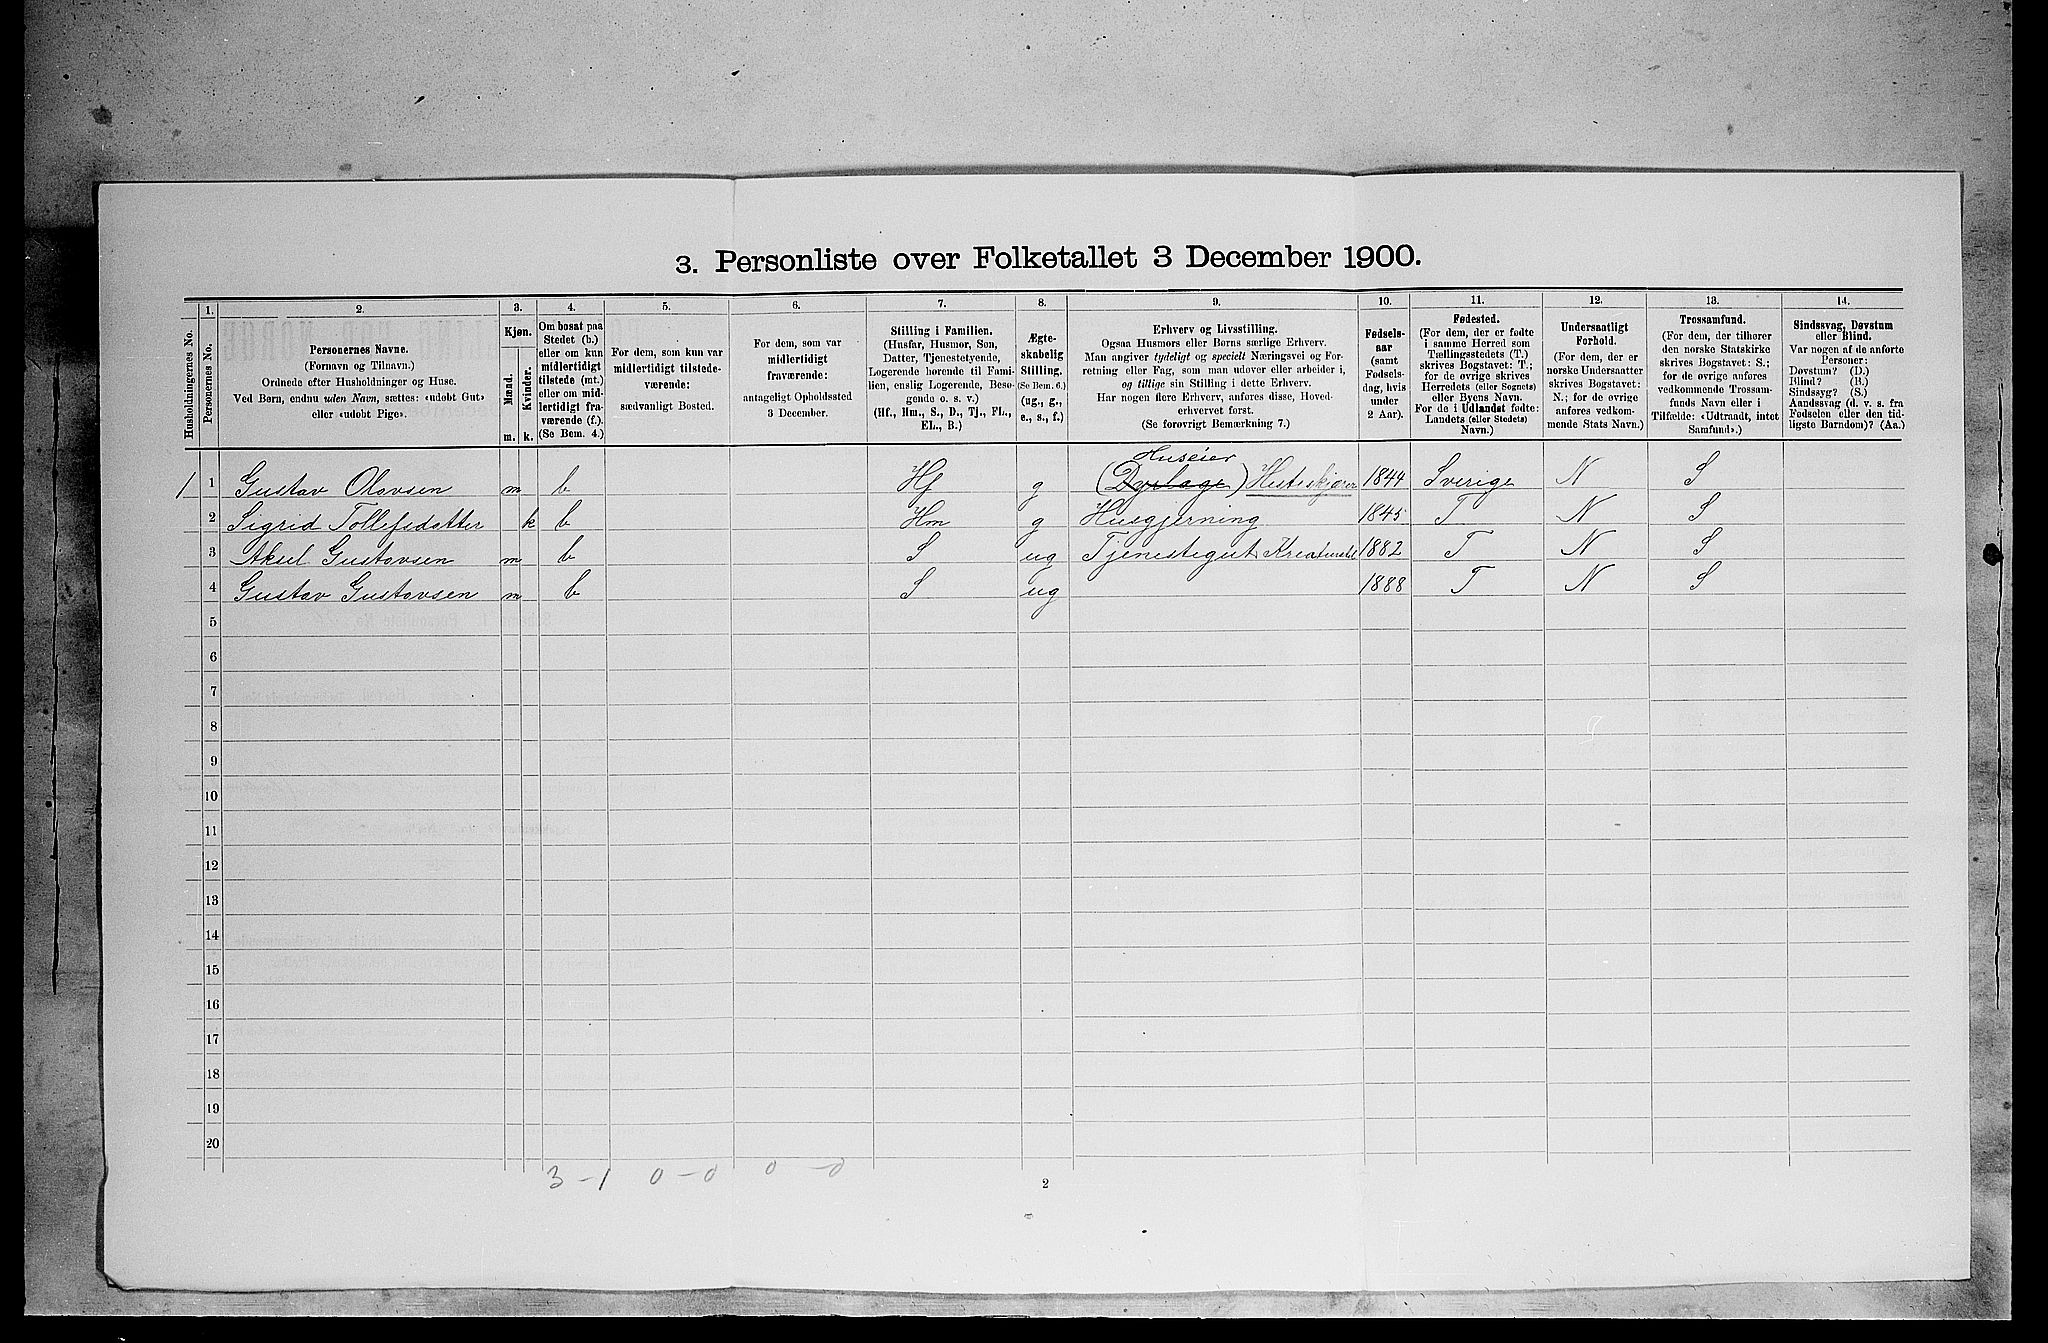 3. Personliste over Folketallet 3 December 1900.
Husholdningernes No.
1.
Personernes No.
2.
Personernes Navne.
(Fornavn og Tilnavn.)
Ordnede efter Husholdninger og Huse.
Ved Børn, endnu uden Navn, sættes: «udøbt Gut»
eller «udøbt Pige».
3.
Kjøn.
Mænd.
Kvinder.
m. k.
4.
Om bosat paa
Stedet (b.)
eller om kun
midlertidigt
tilstede (mt.)
eller om mid-
lertidigt fra-
værende (f.).
(Se Bem. 4.)
5.
For dem, som kun var
midlertidigt tilstede-
værende:
sædvanligt Bosted.
6.
For dem, som var
midlertidigt
fraværende:
antageligt Opholdssted
3 December.
7.
Stilling i Familien.
(Husfar, Husmor, Søn,
Datter, Tjenestetyende,
Logerende hørende til Fami-
lien, enslig Logerende, Besø-
gende o. s. v.)
(Hf., Hm., S., D., Tj., FL.,
EL., B.)
8.
Ægte-
skabelig
Stilling.
(Se Bem. 6.)
(ug., g.,
e., s., f.)
9.
Erhverv og Livsstilling.
Ogsaa Husmors eller Børns særlige Erhverv.
Man angiver tydeligt og specielt Næringsvei og For-
retning eller Fag, som man udøver eller arbeider i,
og tillige sin Stilling i dette Erhverv.
Har nogen flere Erhverv, anføres disse, Hoved-
erhvervet først.
(Se forøvrigt Bemærkning 7.)
10.
Fødsels-
aar
(samt
Fødsels-
dag, hvis
under
2 Aar).
11.
Fødested.
(For dem, der er fødte
i samme Herred som
Tællingsstedets (T.)
skrives Bogstavet: T.;
for de øvrige skrives
Herredets (eller Sognets)
eller Byens Navn.
For de i Udlandet fødte:
Landets (eller Stedets)
Navn.)
12.
Undersaatligt
Forhold.
(For dem, der er
norske Undersaatter
skrives Bogstavet:
N.; for de øvrige
anføres vedkom-
mende Stats Navn.)
13.
Trossamfund.
(For dem, der tilhører
den norske Statskirke
skrives Bogstavet: S.;
for de øvrige anføres
vedkommende Trossam-
funds Navn eller i
Tilfælde: «Udtraadt, intet
Samfund».)
14.
Sindssvag, Døvstum
eller Blind.
Var nogen af de anførte
Personer:
Døvstum? (D.)
Blind? (B.)
Sindssyg? (S.)
Aandssvag (d. v. s. fra
Fødselen eller den tid-
ligste Barndom)? (Aa.)
Huseier
1 1 Gustav Olavsen m b Hf g (Dyrlæge) Hesteskjører 1844 Sverige N S
2 Sigrid Tollefsdatter k b Hm g Husgjerning 1845 T N S
3 Aksel Gustavsen m b S ug Tjenestegut Kreaturstel 1882 T N S
4 Gustav Gustavsen m b S ug 1888 T N S
5
6
7
8
9
10
11
12
13
14
15
16
17
18
19
20
3 – 1 0 – 0 0 – 0
2